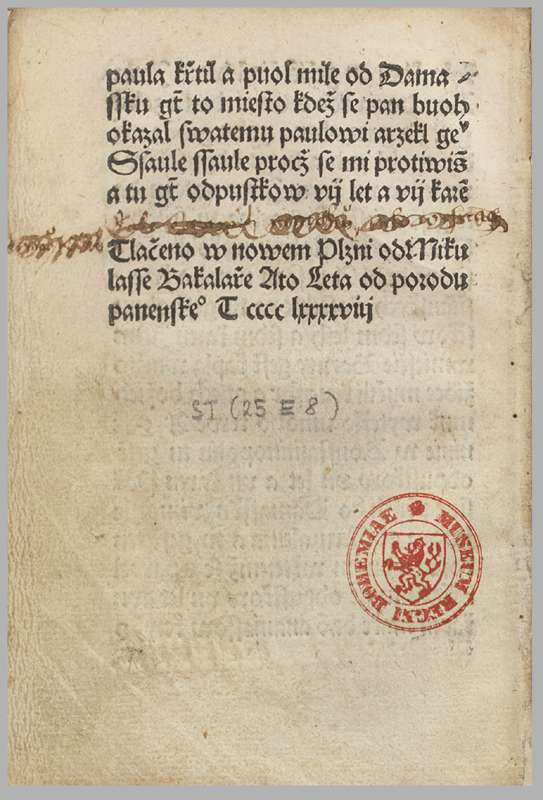 paula kr̃til a puol mile od Dama ⸗
ssku gt̃ to miesto kdez̃ se pan buoh
okazal swatemu paulowi arzekl geᵛ
Ssaule ssaule procz̃ se mi protiwis̃
a tu gt̃ odpustkow vij let a vij karẽ
Tlačeno w nowem Plzni odt Niku
lasse Bakalaře Ato Leta od porodu
panenske⁰ T cccc lxxxxviij
ST (25 E 8)
MUSEUM REGNI BOHEMIAE